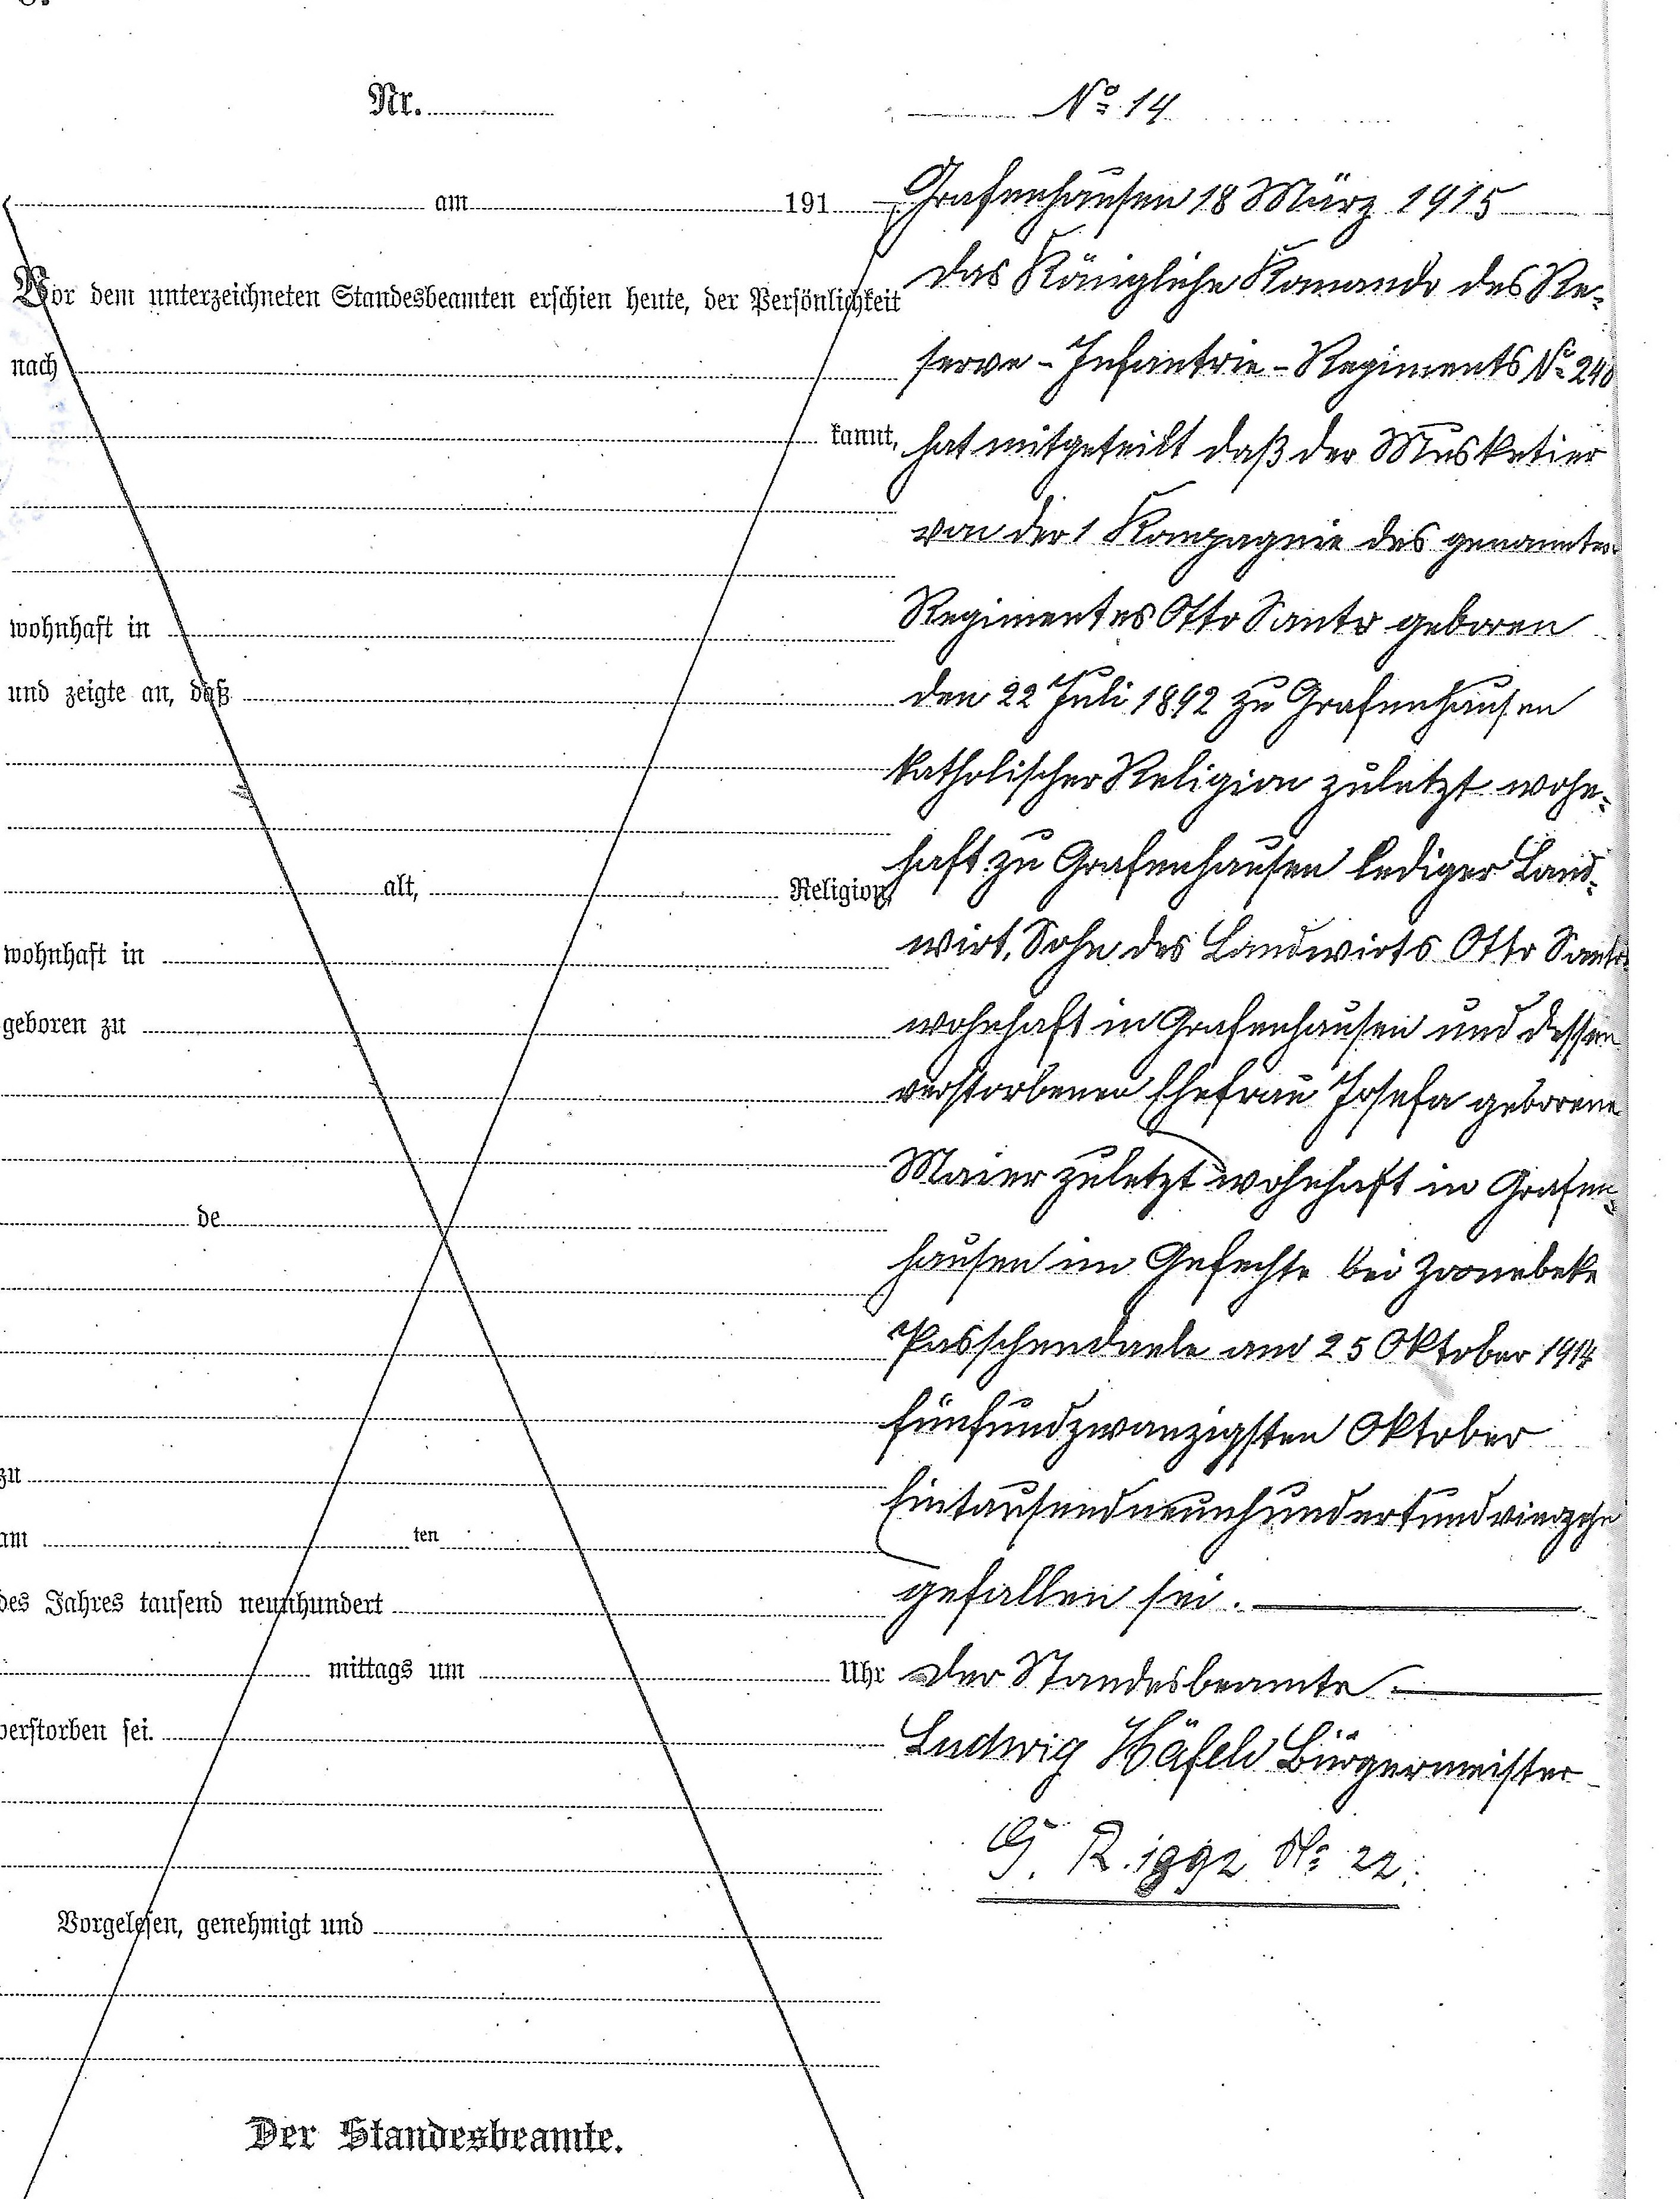 Nr.
am 191
Vor dem unterzeichneten Standesbeamten erschien heute, der Persönlichkeit
nach
kannt,
wohnhaft in
und zeigte an, daß
alt, Religion,
wohnhaft in
geboren zu
de
zu
am ten
des Jahres tausend neunhundert
mittags um Uhr
verstorben sei.
Vorgelesen, genehmigt und
Der Standesbeamte.
No 14
Grafenhausen 18 März 1915
Das Königliche Komando des Re-
serve-Infantrie-Regiments No 240
hat mitgeteilt daß der Musketier
von der 1 Kompagnie des genannten
Regimentes Otto Santo geboren
den 22 Juli 1892 zu Grafenhausen
katholischer Religion zuletzt wohn-
haft zu Grafenhausen lediger Land-
wirt, Sohn des Landwirts Otto Santo
wohnhaft in Grafenhausen und dessen
verstorbenen Ehefrau Josefa geborene
Maier zuletzt wohnhaft in Grafen-
hausen im Gefechte bei Zonnebeke
Passchendaele am 25 Oktober 1914
fünfundzwanzigsten Oktober
Eintausendneunhundertundvierzehn
gefallen sei.
Der Standesbeamte.
Ludwig Häfele Bürgermeister
G. R. 1892 No 22.